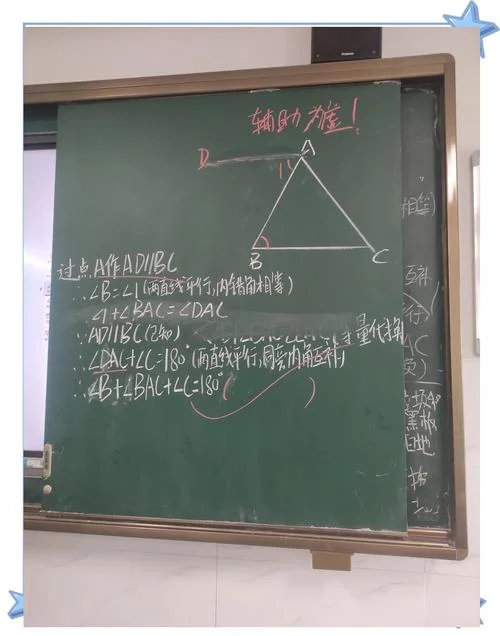 辅助为虚!
D
A
1
B
C
过点A作AD∥BC
∴∠B=∠1(两直线平行,内错角相等)
∠1+∠BAC=∠DAC
∵AD∥BC(已知)
量代换
∴∠DAC+∠C=180°(两直线平行,同旁内角互补)
∴∠B+∠BAC+∠C=180°( )
相等)
互补
行)
AC
黑板